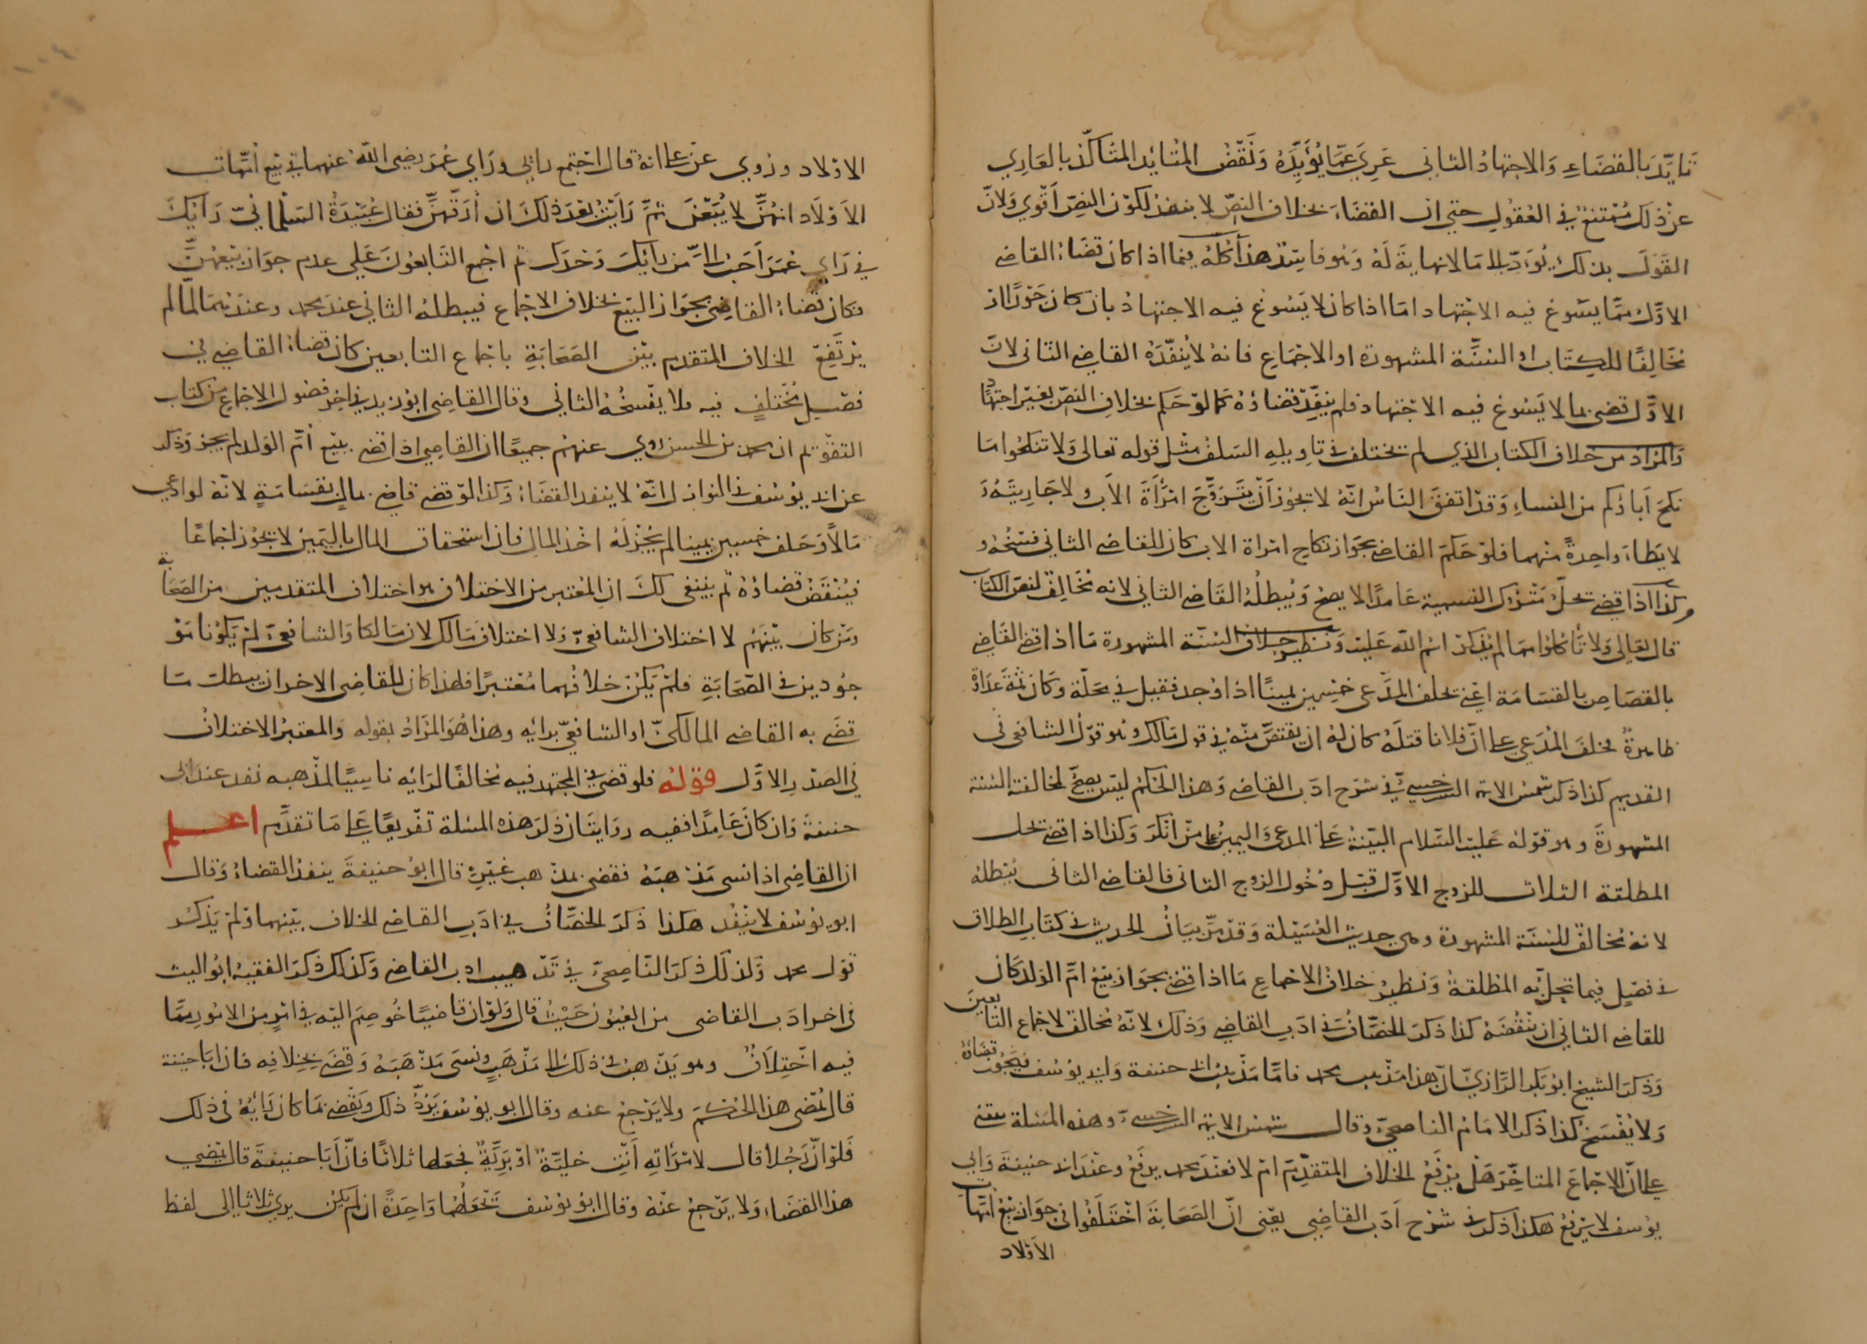 تأيّد بالقضاء والاجتهاد الثاني عري عما يؤيّده ونقض المتأيد المتأكّد بالعاري
عن ذلك ممتنع في العقول حتى ان القضاء بخلاف النص لا ينفذ لكون النص اقوى ولانّ
القول بذلك يؤدّي الى ما لا نهاية له وهو فاسد هذا كله فيما اذا كان قضاء القاضي
الاول مما يسوغ فيه الاجتهاد اما اذا كان لا يسوغ فيه الاجتهاد بان كان جورا او
مخالفا للكتاب او السنّة المشهورة او الاجماع فانه لا ينفّذه القاضي الثاني لانّ
الاول قضى بما لا يسوغ فيه الاجتهاد فلم ينفّذ قضاؤه كما لو حكم بخلاف النص بغير اجتهاد
والمراد من خلاف الكتاب الذي لم تختلف في تاويله السلف مثل قوله تعالى ولا تنكحوا ما
نكح آباؤكم من النساء وقد اتفق الناس انه لا يجوز أن يتزوّج امرأة الأب ولا جاريته و
لا يطاء واحدة منهما فلو حكم القاضي بجواز نكاح امراة الاب كان للقاضي الثاني فسخه و
كذا اذا قضى بحلّ متروك التسمية عامدا لا يصح ويبطله القاضي الثاني لانه مخالف لنص الكتاب
قال تعالى ولا تأكلوا مما لم يذكر اسم الله عليه ونظير خلاف السنّة المشهورة ما اذا قضى القاضي
بالقصاص بالقسامة اعني بحلف المدّعي خمسين يمينا اذا وجد قتيل في محلّة وكان ثمّة عداوة
ظاهرة فحلف المدعي على ان فلانا قتله كان له ان يقتصّ منه في قول مالك وهو قول الشافعي في
القديم كذا ذكر شمس الائمة السرخسي في شرح ادب القاضي وهذا الحكم ليس يصح لمخالفة السنة
المشهورة وهو قوله عليه السلام البيّنة على المدعي واليمين على من انكر وكذا اذا قضى بحل
المطلقة الثلاث للزوج الاوّل قبل دخول الزوج الثاني فالقاضي الثاني يبطله
لانه مخالف للسنّة المشهورة وهي حديث العسيلة وقد مرّ بيان الحديث في كتاب الطلاق
في فصل فيما تحل به المطلقة ونظير خلاف الاجماع ما اذا قضى بجواز بيع امّ الولد كان
للقاضي الثاني ان ينقضه كذا ذكر الخصّاف في ادب القاضي وذلك لانّه مخالف لاجماع التابعين
وذكر الشيخ ابو بكر الرازي ان هذا مذهب محمد فاما مذهب ابي حنيفة وابي يوسف فيجوز قضاؤه
ولا يفسخ كذا ذكر الامام الناصحي وقال شمس الائمة السرخسي وهذه المسئلة تبتني
على انّ الاجماع المتاخر هل يرفع الخلاف المتقدّم ام لا فعند محمد يرفع وعند ابي حنيفة وابي
يوسف لا يرفع هكذا ذكر في شرح ادب القاضي يعني انّ الصحابة اختلفوا في جواز بيع امّهات
الأولاد
الاولاد وروي عن علي انه قال اجتمع رايي وراي عمر رضي الله عنهما في بيع امّهات
الأولاد انهنّ لا يبعن ثمّ رأيت بعد ذلك ان ارقّهنّ فقال عبيدة السلماني رأيك
في راي عمر احب اليّ من رأيك وحدك ثم اجمع التابعون على عدم جواز بيعهنّ
فكان قضاء القاضي بجواز البيع بخلاف الاجماع فيبطله الثاني عند محمد وعندهما لمّا لم
يرتفع الخلاف المتقدم بين الصحابة باجماع التابعين كان قضاء القاضي في
فصل مختلف فيه فلا يفسخه الثاني وقال القاضي ابو زيد في اخر فصول الاجماع من كتاب
التقويم ان محمد بن الحسن روي عنهم جميعا ان القاضي اذا قضى ببيع أمّ الولد لم يجز وذكر
عن ابي يوسف في النوادر انّه لا ينفذ القضاء وكذا لو قضى قاض بمال بقسامة لانّه لو ادعى
مالا وحلف خمسين يمينا لم يجز له اخذ المال فان استحقاق المال باليمين لا يجوز اجماعا
فينقض قضاؤه ثم ينبغي لك ان المعتبر من الاختلاف هو اختلاف المتقدمين من الصحابة
ومن كان بينهم لا اختلاف الشافعي ولا اختلاف مالك لان مالكا والشافعي لم يكونا مو
جودين في الصحابة فلم يكن خلافهما معتبرا فلهذا كان للقاضي الاخر ان يبطل ما
قضى به القاضي المالكيّ او الشافعيّ برايه وهذا هو المراد بقوله والمعتبر الاختلاف
في الصدر الأوّل قوله فلو قضى في المجتهد فيه مخالفا لرايه ناسيا لمذهبه نفذ عند ابي
حنيفة وان كان عامدا ففيه روايتان ذكر هذه المسئلة تفريعا على ما تقدّم اعلم
ان القاضي اذا نسى مذهبه فقضى بمذهب غيره قال ابو حنيفة ينفذ القضاء وقال
ابو يوسف لا ينفذ هكذا ذكر الخصّاف في ادب القاضي الخلاف بينهما ولم يذكر
قول محمد وكذلك ذكر الناصحي في تهذيب ادب القاضي وكذلك ذكر الفقيه ابو الليث
في اخر ادب القاضي من العيون حيث قال ولو ان قاضيا خوصم اليه في امر من الامور مما
فيه اختلاف وهو يذهب في ذلك الى مذهب ونسى مذهبه وقضى بخلافه فان ابا حنيفة
قال يمضي هذا الحكم ولا يرجع عنه وقال ابو يوسف يردّ ذلك ويقضي بما كان رأيه في ذلك
فلو انّ رجلا قال لامرأته أنت خليّة او بريّة فجعلها ثلاثا فانّ أبا حنيفة قال يمضي
هذا القضاء ولا يرجع عنه وقال ابو يوسف تجعلها واحدة ان لم يكن يرى ثلاثا الى لفظ